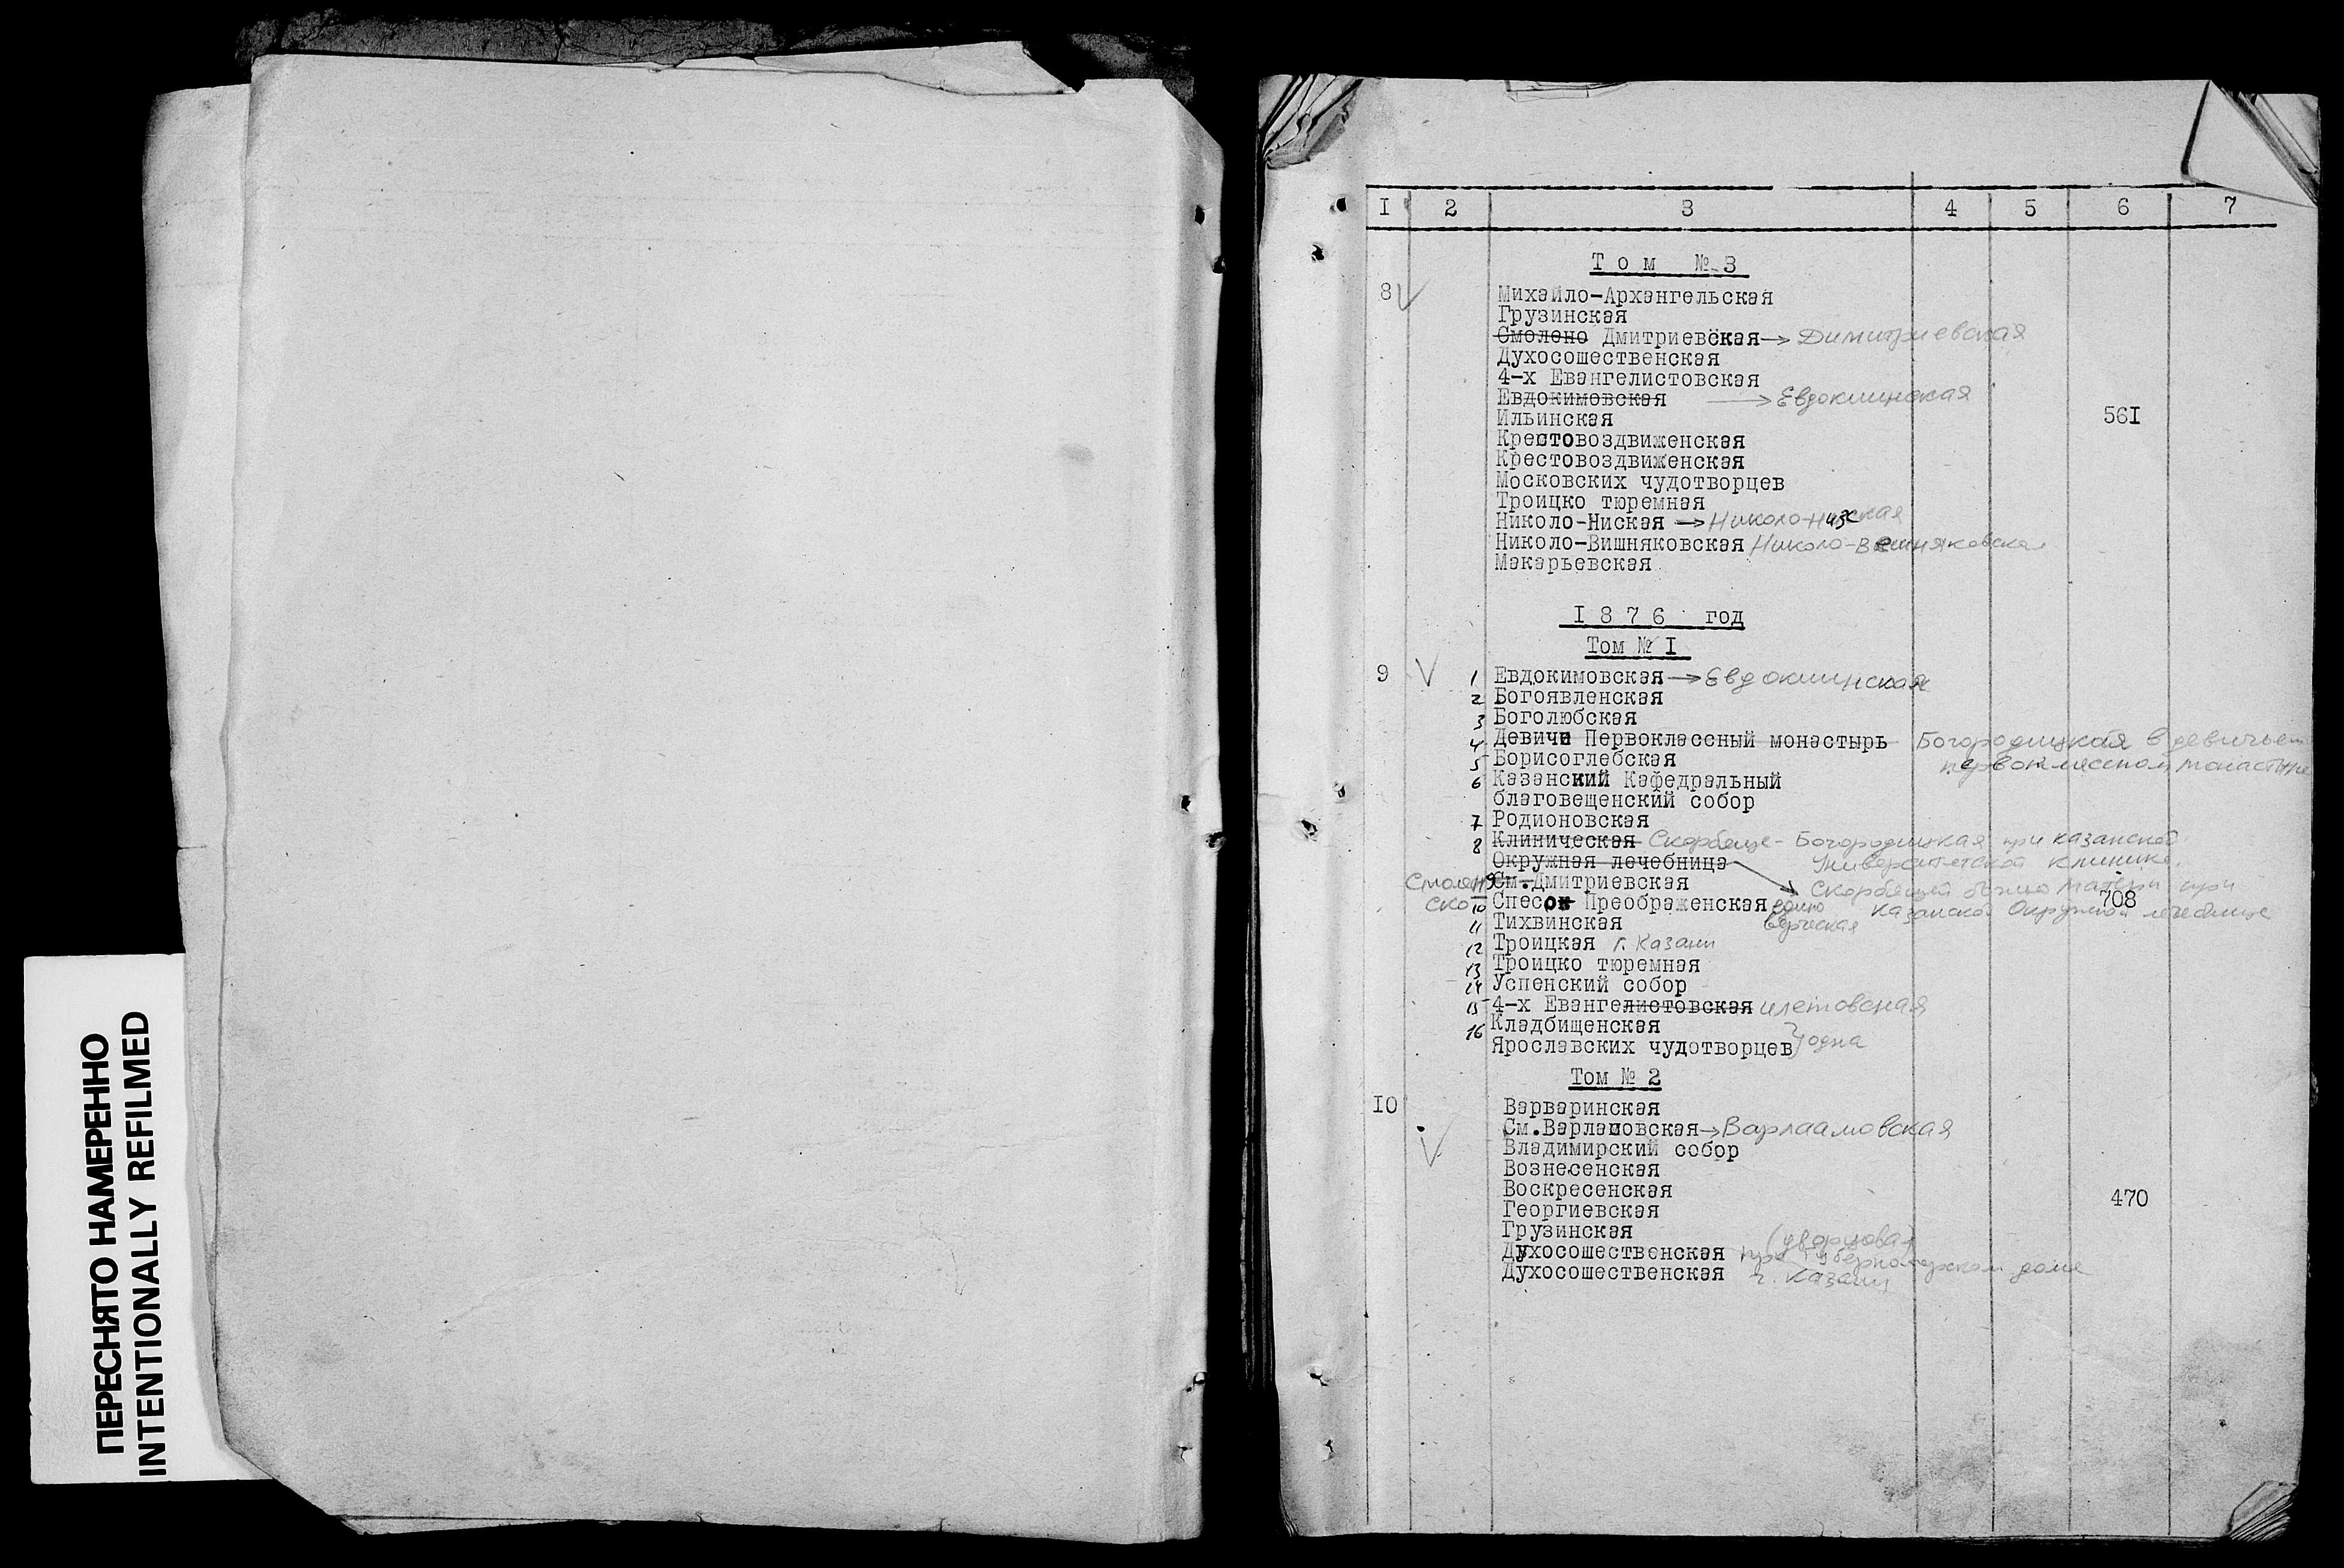 ПЕРЕСНЯТО НАМЕРЕННО
INTENTIONALLY REFILMED
I 2 3 4 5 6 7
Том № 3
8 Михайло-Архангельская
Грузинская
Смолено Дмитриевская → Димитриевская
Духосошественская
4-х Евангелистовская
Евдокимовская → Евдокиинская
Ильинская 56I
Крестовоздвиженская
Крестовоздвиженская
Московских чудотворцев
Троицко тюремная
Николо-Ниская → Николо-Низкая
Николо-Вишняковская Николо-Вешняковская
Макарьевская
I876 год
Том № I
9 1 Евдокимовская → Евдокиинская
2 Богоявленская
3 Боголюбская
4 Девичи Первоклассный монастырь Богородицкая в девичьем
первоклассном монастыре
5 Борисоглебская
6 Казанский Кафедральный
благовещенский собор
7 Родионовская
8 Клиническая Скорбяще-Богородицкая при казанской
Университетской клинике.
Окружная лечебница → Скорбящей божию матери при
Казанской Окружной лечебнице
Смоленско 9 См.Дмитриевская
10 Спесок Преображенская единоверческая 708
11 Тихвинская
12 Троицкая г. Казани
13 Троицко тюремная
14 Успенский собор
15 4-х Евангелистовская
16 Кладбищенская
Ярославских чудотворцев } одна
Том № 2
I0 Варваринская
См.Варламовская → Варлаамовская
Владимирский собор
Вознесенская
Воскресенская 470
Георгиевская
Грузинская
Духосошественская (дворцовая) при губернаторском доме
Духосошественская г. Казани